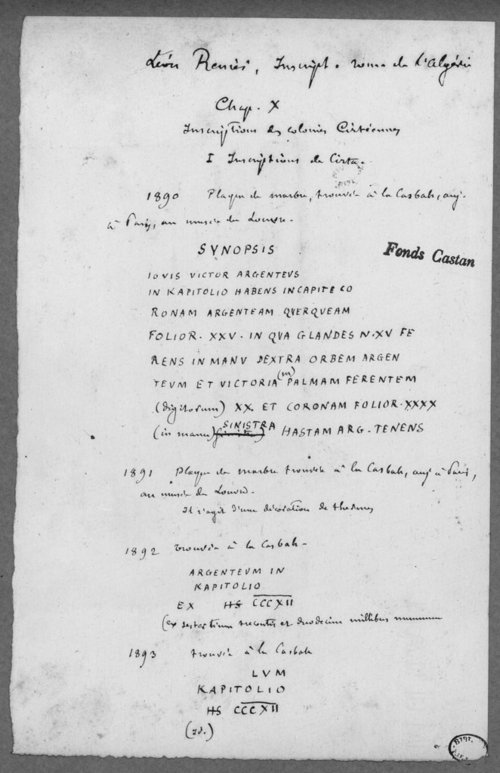 Léon Renier, Inscript. rom. de l'Algérie
Chap. X
Inscriptions des colonies Cirtéennes
I Inscriptions de Cirta.
1890 Plaque de marbre, trouvée à la Casbah, auj.
à Paris, au musée du Louvre.
SYNOPSIS
Fonds Castan
IOVIS VICTOR ARGENTEVS
IN KAPITOLIO HABENS IN CAPITE CO
RONAM ARGENTEAM QVERQVEAM
FOLIOR. XXV. IN QVA GLANDES N. XV FE
RENS IN MANV DEXTRA ORBEM ARGEN
TEVM ET VICTORIA (m) PALMAM FERENTEM
(digitorum) XX ET CORONAM FOLIOR. XXXX
(in manu) SINISTRA HASTAM ARG. TENENS
1891 Plaque de marbre trouvée à la Casbah, auj. à Paris,
au musée du Louvre.
Il s'agit d'une décoration de
1892 trouvée à la Casbah.
ARGENTEVM IN
KAPITOLIO
EX HS CCCXII
(ex sestertium trecentis et duodecim millibus nummum
1893 trouvée à la Casbah
LVM
KAPITOLIO
HS CCCXII
(id.)